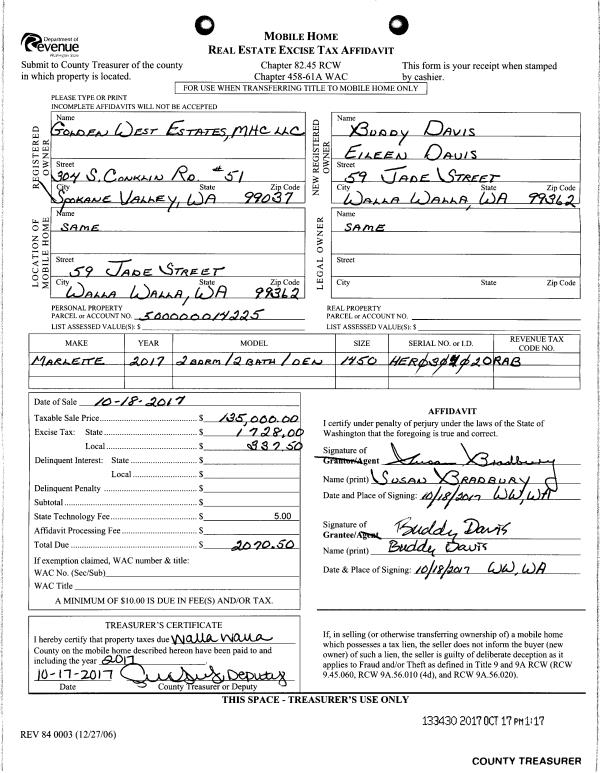 Department of
Revenue
Washington State
MOBILE HOME
REAL ESTATE EXCISE TAX AFFIDAVIT
Submit to County Treasurer of the county
in which property is located.
Chapter 82.45 RCW
Chapter 458-61A WAC
This form is your receipt when stamped
by cashier.
FOR USE WHEN TRANSFERRING TITLE TO MOBILE HOME ONLY
PLEASE TYPE OR PRINT
INCOMPLETE AFFIDAVITS WILL NOT BE ACCEPTED
REGISTERED
OWNER
Name
GOLDEN WEST ESTATES, MHC LLC
Street
304 S. CONKLIN RD. #51
City State Zip Code
SPOKANE VALLEY, WA 99037
NEW REGISTERED
OWNER
Name
BUDDY DAVIS
EILEEN DAVIS
Street
59 JADE STREET
City State Zip Code
WALLA WALLA, WA 99362
LOCATION OF
MOBILE HOME
Name
SAME
Street
59 JADE STREET
City State Zip Code
WALLA WALLA, WA 99362
LEGAL OWNER
Name
SAME
Street
City State Zip Code
PERSONAL PROPERTY
PARCEL or ACCOUNT NO. 500000014225
LIST ASSESSED VALUE(S): $
REAL PROPERTY
PARCEL or ACCOUNT NO.
LIST ASSESSED VALUE(S): $
MAKE YEAR MODEL SIZE SERIAL NO. or I.D. REVENUE TAX
CODE NO.
MARLETTE 2017 2 BDRM / 2 BATH / DEN 1450
Date of Sale 10-18-2017
Taxable Sale Price $ 135,000.00
Excise Tax: State $ 1728.00
Local $ 337.50
Delinquent Interest: State $
Local $
Delinquent Penalty $
Subtotal $
State Technology Fee $ 5.00
Affidavit Processing Fee $
Total Due $ 2070.50
If exemption claimed, WAC number & title:
WAC No. (Sec/Sub)
WAC Title
A MINIMUM OF $10.00 IS DUE IN FEE(S) AND/OR TAX.
AFFIDAVIT
I certify under penalty of perjury under the laws of the State of
Washington that the foregoing is true and correct.
Signature of
Grantor/Agent Susan Bradbury
Name (print) SUSAN BRADBURY
Date and Place of Signing: 10/18/2017 WW, WA
Signature of
Grantee/Agent Buddy Davis
Name (print) Buddy Davis
Date & Place of Signing: 10/18/2017 WW, WA
TREASURER'S CERTIFICATE
I hereby certify that property taxes due Walla Walla
County on the mobile home described hereon have been paid to and
including the year 2017.
10-17-2017 Deputy
Date County Treasurer or Deputy
If, in selling (or otherwise transferring ownership of) a mobile home
which possesses a tax lien, the seller does not inform the buyer (new
owner) of such a lien, the seller is guilty of deliberate deception as it
applies to Fraud and/or Theft as defined in Title 9 and 9A RCW (RCW
9.45.060, RCW 9A.56.010 (4d), and RCW 9A.56.020).
THIS SPACE - TREASURER'S USE ONLY
133430 2017 OCT 17 PM 1:17
REV 84 0003 (12/27/06)
COUNTY TREASURER